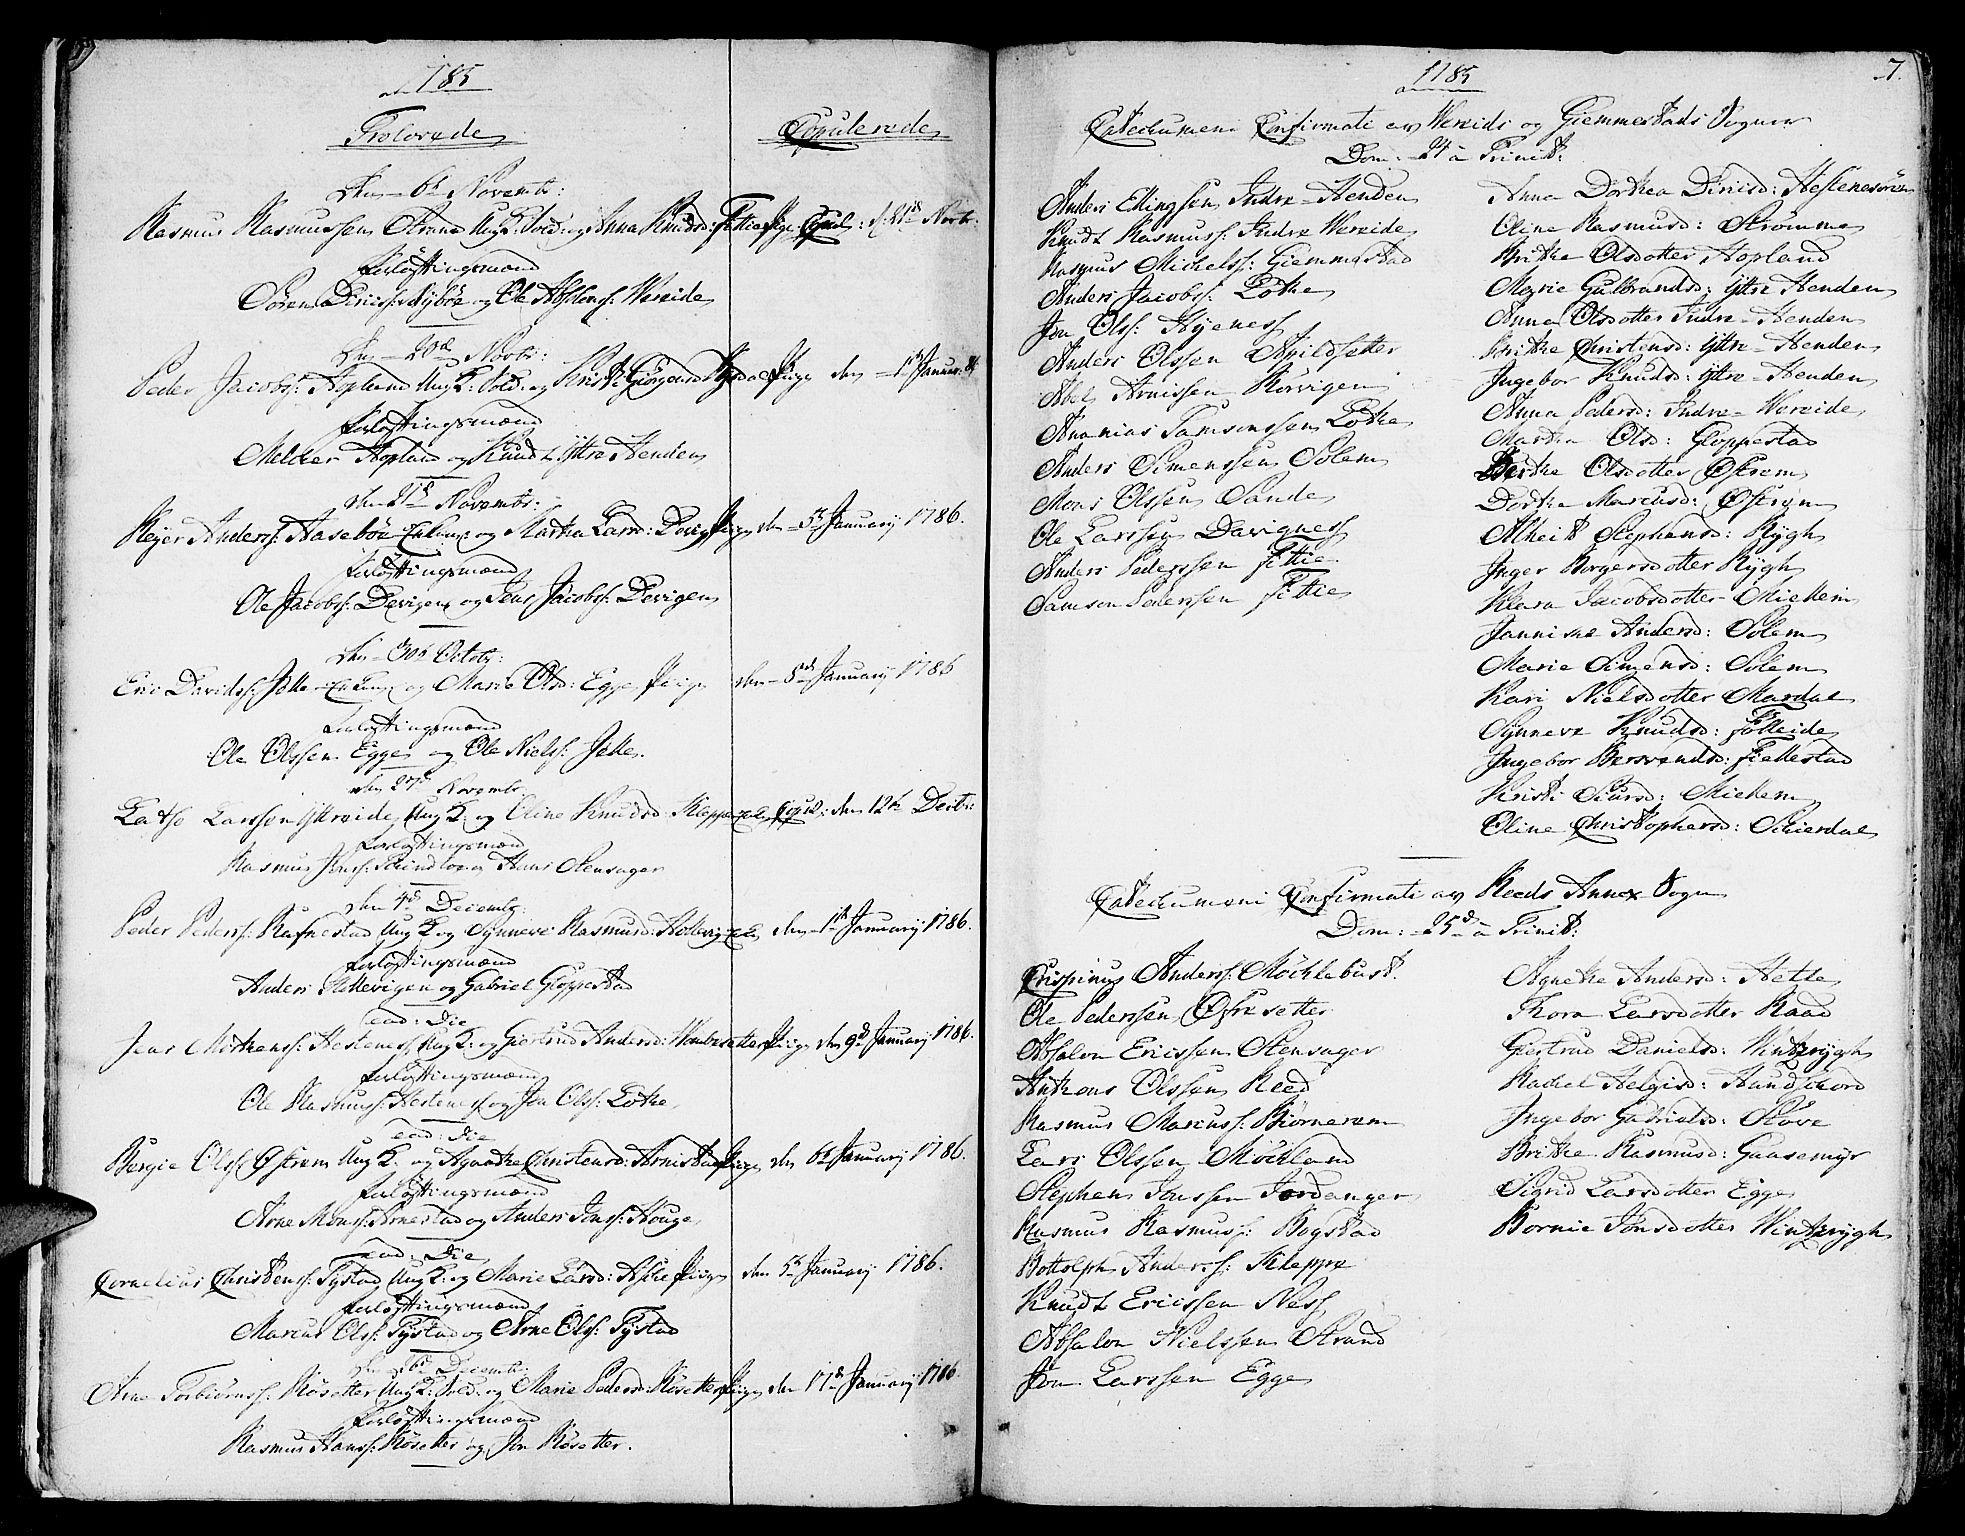 1785
Trolovede
Copulerede
den 6te Novembr:
Rasmus Rasmussen Ung K: Sold: og Anna Knudsd: Fittie Pige Copul: d: 21de Novbr:
Forløftningsmænd
Sören Diricss: Rybøe og Ole Abslons: Wereide
den 20de Novbr:
Peder Jacobs: Hopland Ung K: Sold: og Kristi Giörgensd: Pige den 1ste Januar: 86
Forløftningsmænd
Melcher Hopland og Knudt Yttre Henden
den 21de Novembr:
Rejer Anderss: Aasebøe Enk: og Martha Larsd: Devig Pige den 5te Januarij 1786.
Forløftningsmænd
Ole Jacobs: Devigen og Jens Jacobs: Devigen
den 30te Octobr:
Eric Davidss: Enk: og Marie Olsd: Egge Pige den 8de Januarij 1786
Forløftningsmænd
Ole Olssen Egge og Ole Niels:
den 27de Novembr:
Larssen Ung K: og Eline Knudsd: Kleppe Copul: den 12te Decbr:
Forløftningsmænd
Rasmus Jons: og Hans Stensager
den 4de Decembr:
Peder Peders: Rafnestad Ung K: og Synneve Rasmusd: den 1ste Januarij 1786.
Forløftningsmænd
Anders og Gabriel Gloppestad
ead: Die
Jens Mithens: Hestenes Ung K: og Giertrud Andersd: Pige den 9de Januarij 1786.
Forløftningsmænd
Ole Rasmuss: Hestenes og Jon Ols: Lothe
ead: Die
Bergie Ols: Østrem Ung K: og Agnethe Christensd: Arnestad Pige den 6te Januarij 1786.
Forløftningsmænd
Arne Monss: Arnestad og Anders Jons: Houge
ead: Die
Cornelius Christens: Tystad Ung K: og Marie Larsd: Pige den 5te Januarij 1786.
Forløftningsmænd
Marcus Ols: Tystad og Arne Ols: Tystad
den 26de Decembr:
Arne Torbiörnss: Røsetter Ung K: Sold: og Marie Pedersd: Røsetter Pige den 17de Januarij 1786
Forløftningsmænd
Rasmus Hanss: Røsetter og Jon Røsetter.
1785
7.
Catechumeni Confirmati av Wereids og Giemmestads Sogner
Dom: 24 a Trinit:
Anders Ellingsen Indre-Henden
Knudt Rasmuss: Indre Wereide
Rasmus Michelss: Giemmestad
Anders Jacobs: Lothe
Jon Ols: Ryenes
Anders Olssen Apildsetter
Abel Arnissen Rörvigen
Ananias Samsonssen Lothe
Anders Simenssen Solem
Mons Olssen Sande
Ole Larssen Davignes
Anders Pederssen Fittie
Samson Pederssen Fittie
Anna Dorthea Diricsd: Hestenesören
Oline Rasmusd: Strömme
Brithe Olsdotter Hopland
Marie Gulbrandsd: Yttre Henden
Anna Olsdotter Indre-Henden
Brithe Christensd: Yttre-Henden
Ingebor Knudsd: Yttre-Henden
Anna Pedersd: Indre-Wereide
Martha Olsd: Gloppestad
Berthe Olsdotter Østrem
Dorthe Marcusd: Østrem
Alheit Stephensd: Rygh
Inger Borgersdotter Rygh
Klara Jacobsdotter Miellem
Janniche Andersd: Solem
Marie Simensd: Solem
Kari Nielsdotter Mardal
Synneve Knudsd: Fölleide
Ingebor Bersvendsd: Fiellestad
Kristi Siursd: Miellem
Oline Christophersd: Skierdal
Catechumeni Confirmati av Reeds Annex Sogn
Dom: 25de a Trinit:
Crispinus Anderss: Möchlebust.
Ole Pederssen Øfresetter
Absalon Ericssen Stensager
Anthons Olssen Reed
Rasmus Marcuss: Biörnerem
Lars Olssen Möchland
Stephens Jonssen Jordanger
Rasmus Rasmuss: Bogstad
Bottolph Anderss: Kleppe
Knudt Ericssen Ness
Absalon Nielssen Strand
Jon Larssen Egge
Agnethe Andersd: Hetle
Thora Larsdotter Raad
Giertrud Danielsd: Wintzrygh
Rachel Helgisd: Hundschord
Ingebor Gabrielsd: Støve
Brithe Rasmusd: Gaasemyr
Sigrid Larsdotter Egge
Bornie Jonsdotter Wintzrygh